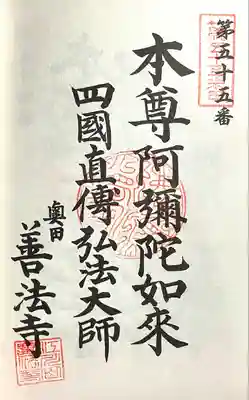 第五十五番
本尊阿彌陀如來
四國直傳弘法大師
奥田
善法寺